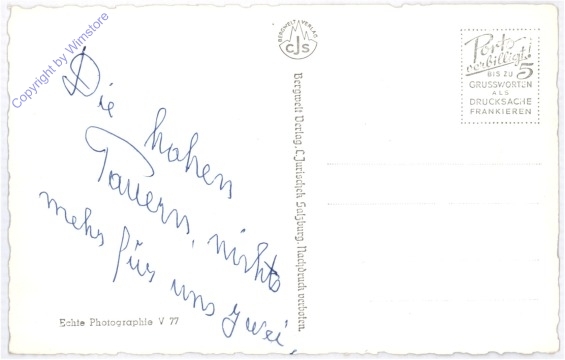 Copyright by Wimstore
Die hohen
Tauern, nichts
mehr für uns zwei.
Echte Photographie V 77
BERGWELT VERLAG
CJS
Bergwelt Verlag, C. Jurischek Salzburg. Nachdruck verboten.
Porto
verbilligt!
BIS ZU 5
GRUSSWORTEN
ALS
DRUCKSACHE
FRANKIEREN